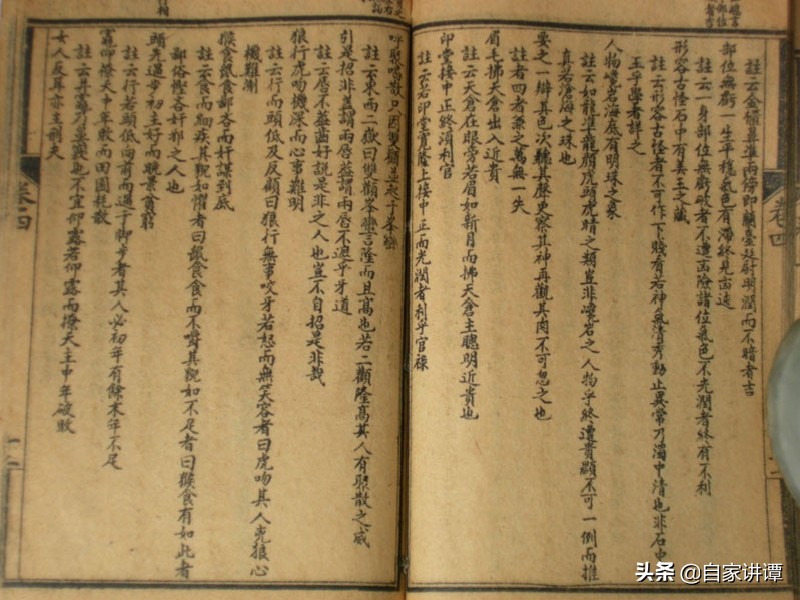 註云金
準兩停即蘭臺廷尉明潤而不暗者吉
部位無虧一生平穩氣色有滯終見迍邅
註云一身部位無虧破者不遭凶險諸位氣色不光潤者終有不利
形容古怪石中有美玉之藏
註云形容古怪者不可作下賤看若神氣清秀動止異常乃濁中清也非石中
玉乎學者詳之
人物巉岩海底有明珠之象
註云如龍準龍顏虎頭虎睛之類豈非巉岩之人物乎終遭貴顯不可一例而推
真若滄海之珠也
要之一辯其色次聽其聲更察其神再觀其肉不可忽之也
註者四者兼之萬無一失
眉毛拂天倉出入近貴
註云天倉在眼旁若眉如新月而拂天倉主聰明近貴也
印堂接中正終須利官
註云若印堂寬隆上接中正而光潤者利乎官祿
呼聚喝散只因雙顴
註云東西二嶽曰雙顴峯巒言隆而且高也若二顴隆高其人有聚散之威
引是招非蓋謂兩唇
註云唇不蓋齒好說是非之人也豈不自招是非哉
狼行虎吻機深而心事難明
註云行而頭低及反顧曰狼行無事咬牙若怒而無笑容者曰虎吻其人兇狼心
機難測
猴食鼠飡鄙吝而奸謀到底
註云食而細疾其貌如懼者曰鼠食食而不嚼其貌如不足者曰猴食有如此者
鄙俗慳吝奸邪之人也
頭先過步初主好而晚景貧窮
註云行若頭低向前而過于脚步者其人必初年有餘末年不足
仰撩天中年敗而田園耗散
註云
不宜仰露若仰露而撩天主中年破敗
女人反耳亦主刑夫
卷四
卷四
头条 @自家讲谭